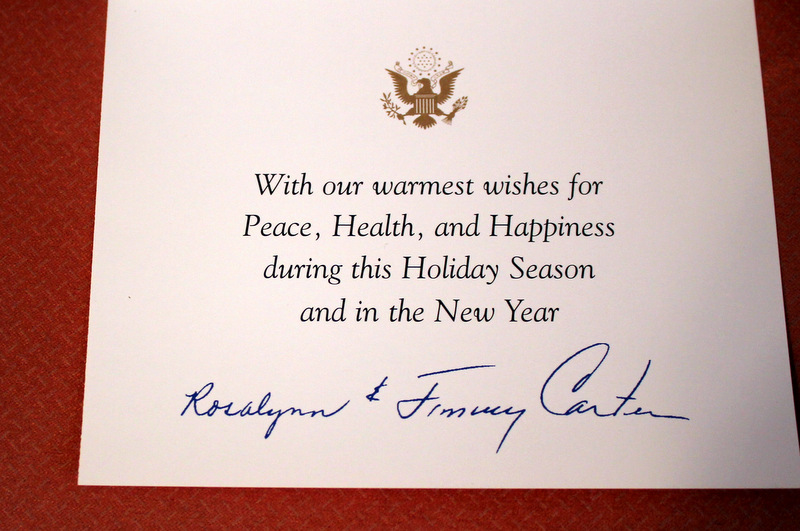 With our warmest wishes for
Peace, Health, and Happiness
during this Holiday Season
and in the New Year
Rosalynn & Jimmy Carter